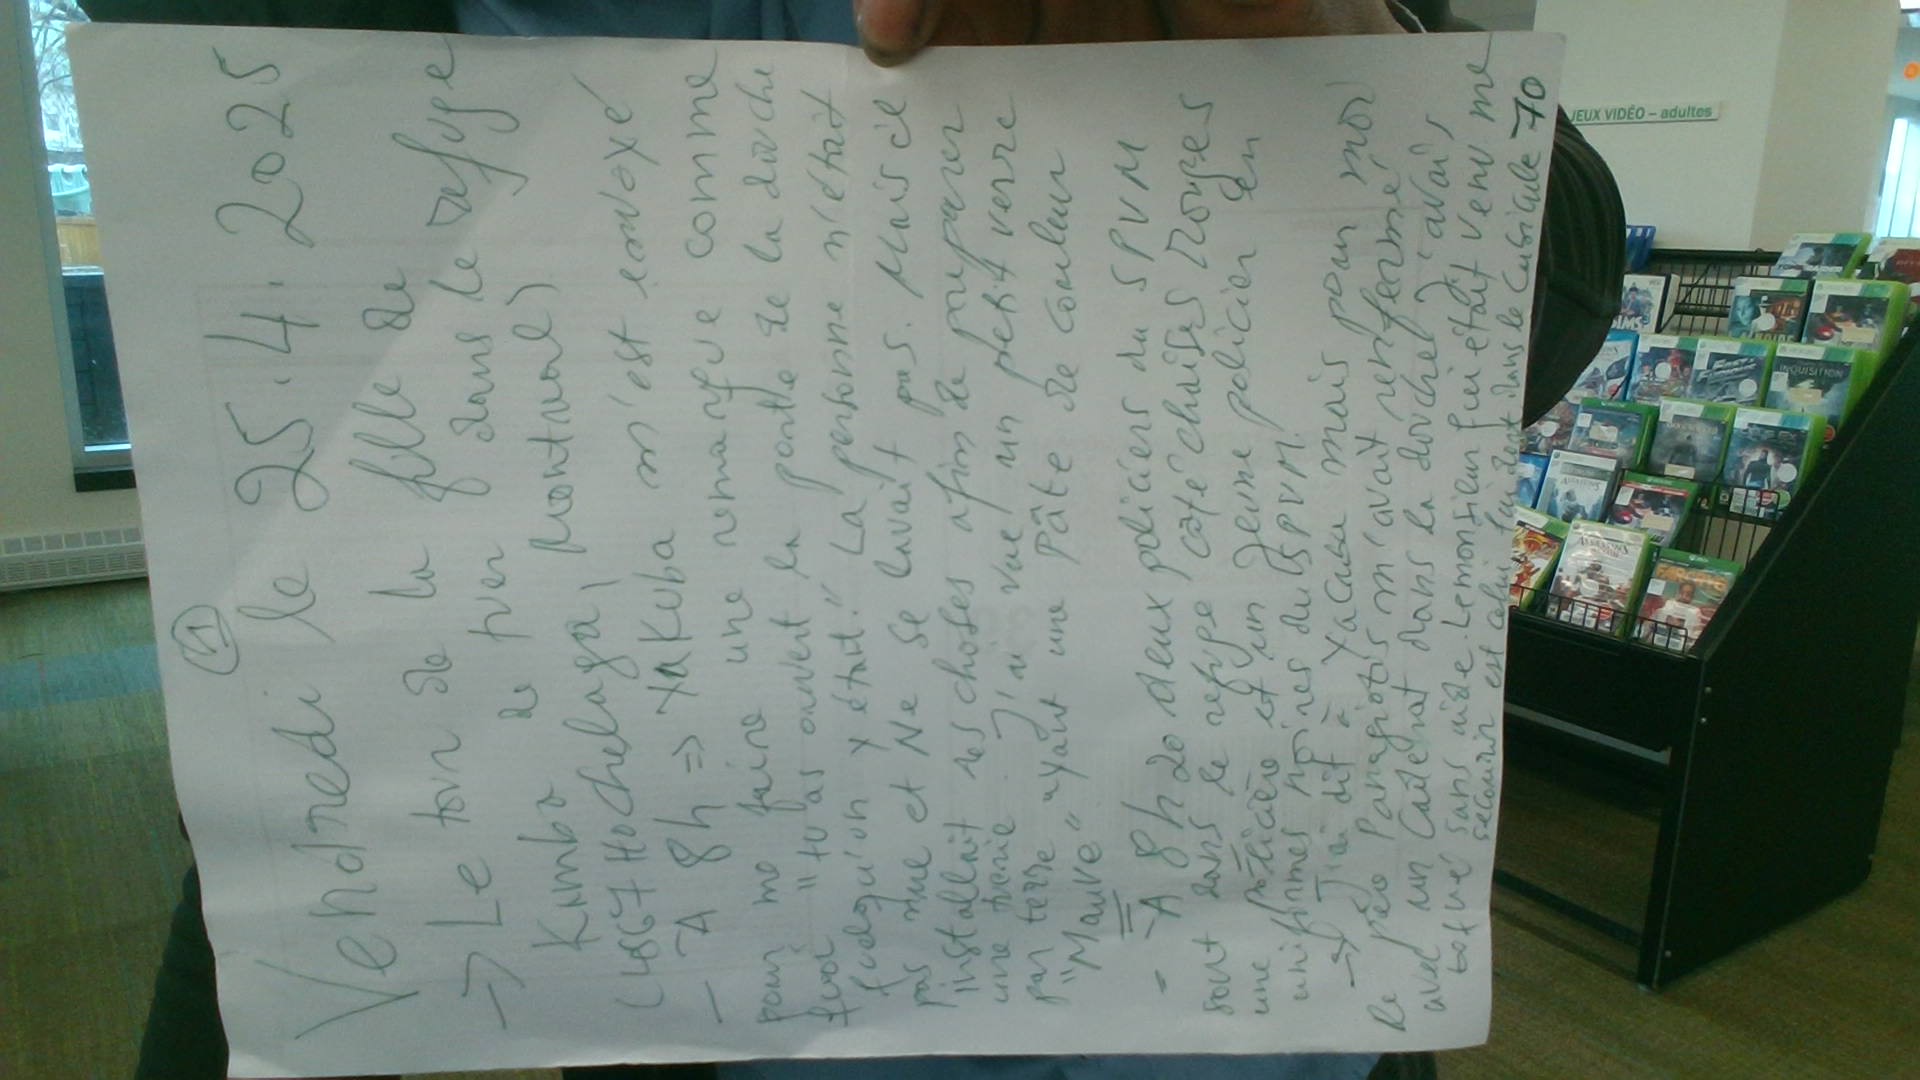 1
Vendredi le 25.4.2025
→ Le ton de la fille de
Kumba a pver dans le refuge
(4867 Hochelaga, Montréal)
- A 8h => YaKuba m'est envoyé
pour me faire une remarque comme
quoi "tu as ouvert la porte de la douche
quelqu'un y était." La personne n'était
pas nue et Ne se lavait pas. Mais il
installait ses choses afin de
une . J'ai vue un petit verre
par terre ayant une pâte de couleur
"Mauve"
- A 8h20 deux policiers du SPVM
sont dans le refuge côté chaises rouges
une policière et un jeune policier en
uniformes noires du SPVM.
→ J'ai dit à Yacuba mais pour moi
le père Panagiotis m'avait renfermé
avec un cadenat dans la douche J'avais
sans aide. Le monsieur qui était venu me
securir est celui qui dort dans le Cubicule 70
JEUX VIDÉO – adultes
INQUISITION